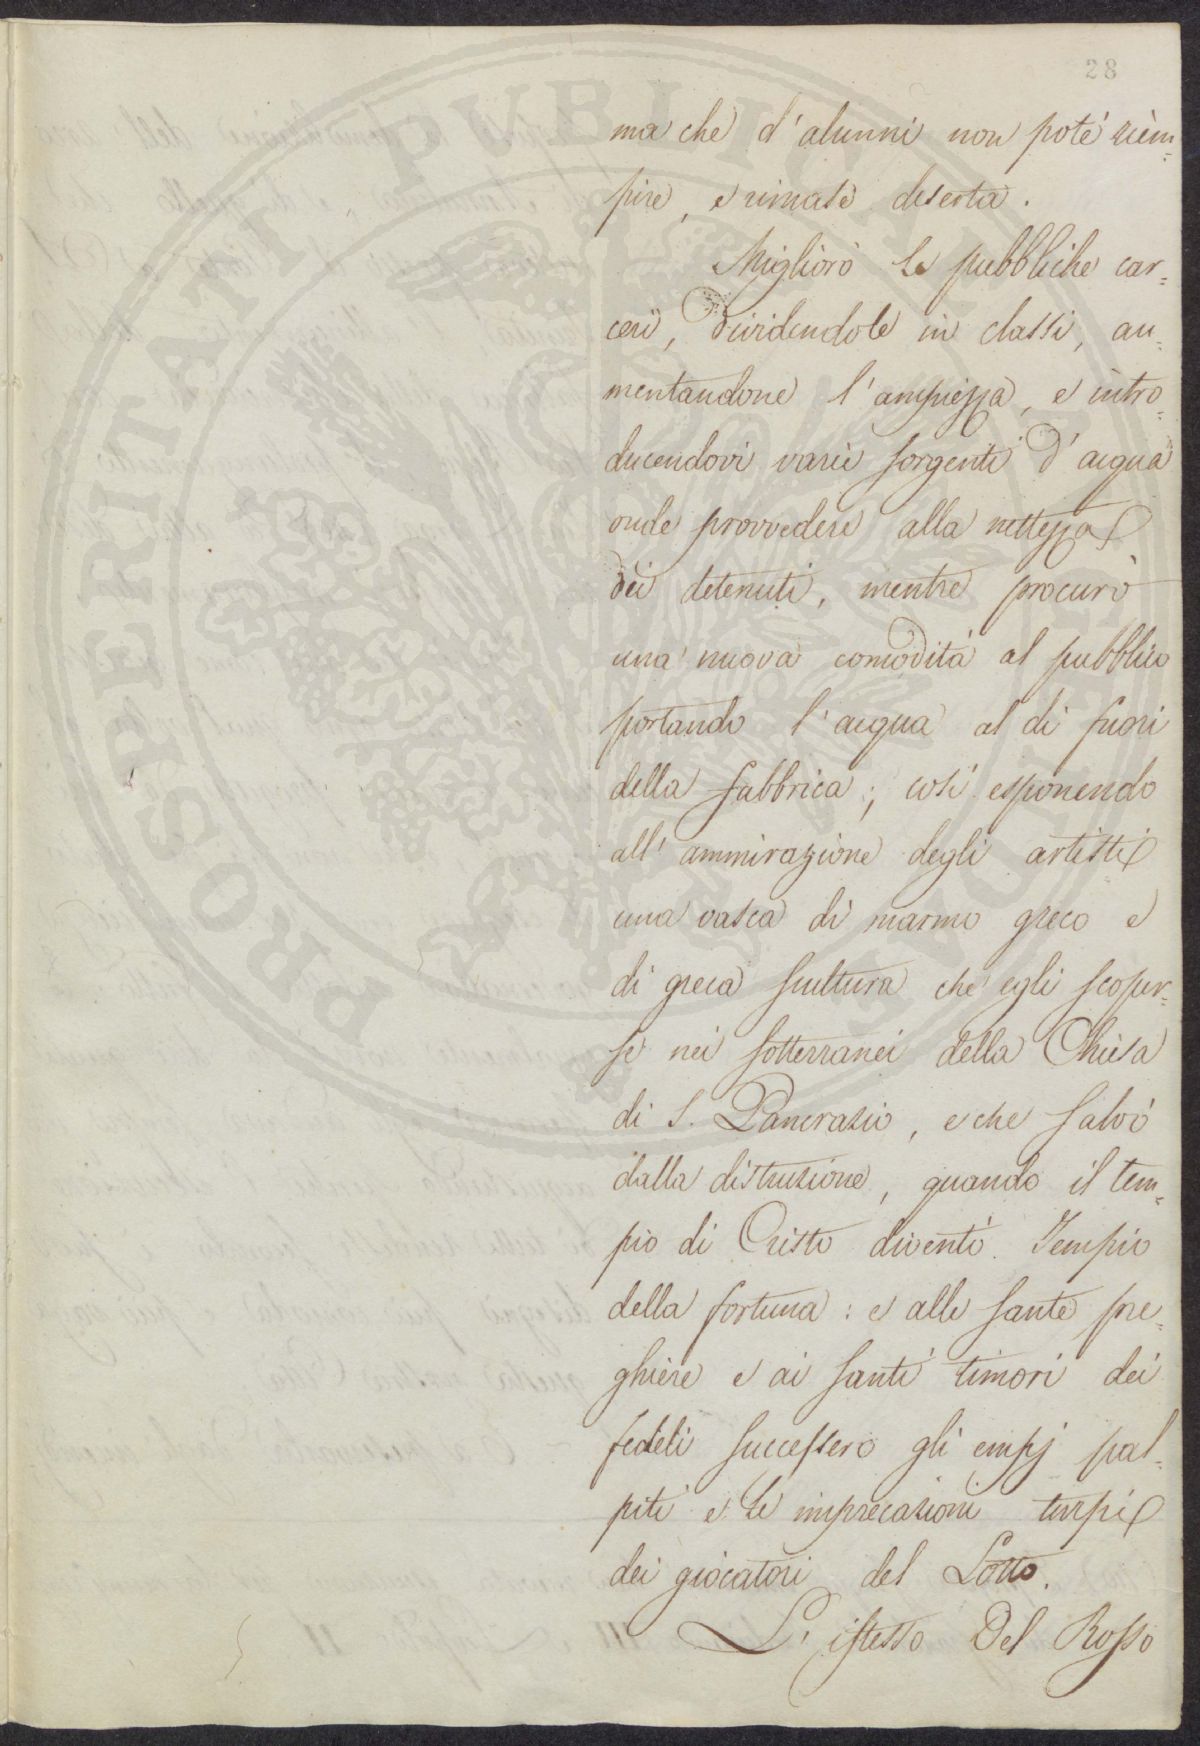 28
PROSPERITATI PUBLICAE
ma che d'alunni non poté riem=
pire, e rimase deserta.
Migliorò le pubbliche car=
ceri, dividendole in classi, au=
mentandone l'ampiezza, e intro=
ducendovi varie sorgenti d'acqua
onde provvedere alla nettezza
dei detenuti, mentre procurò
una nuova comodità al pubblico
portando l'acqua al di fuori
della fabbrica; così esponendo
all'ammirazione degli artisti
una vasca di marmo greco e
di greca scultura che egli scoper=
se nei sotterranei della Chiesa
di S. Pancrazio, e che salvò
dalla distruzione, quando il tem=
pio di Cristo diventò Tempio
della fortuna: e alle sante pre=
ghiere e ai santi timori dei
fedeli successero gli empj pal=
piti e le imprecazioni turpi
dei giocatori del Lotto.
L'istesso Del Rosso